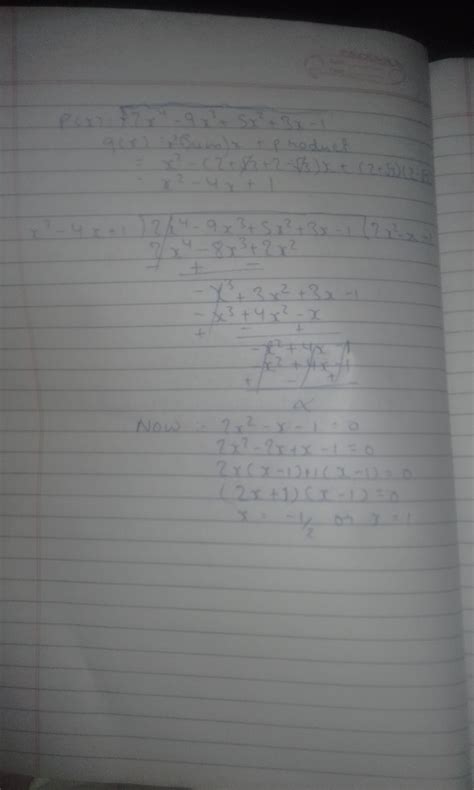 p(x) :- 2x⁴ - 9x³ + 5x² + 3x - 1
q(x) : x² (Sum)x + product
= x² - (2+√3+2-√3)x + (2+√3)(2-
= x² - 4x + 1
x² - 4x + 1 ) 2x⁴ - 9x³ + 5x² + 3x - 1 ( 2x² - x -
2x⁴ - 8x³ + 2x²
- + -
- x³ + 3x² + 3x - 1
- x³ + 4x² - x
+ - +
- x² + 4x - 1
- x² + 4x - 1
+ - +
Now :- 2x² - x - 1 = 0
2x² - 2x + x - 1 = 0
2x(x-1)+1(x-1)=0
(2x+1)(x-1)=0
x = -1/2 or x = 1